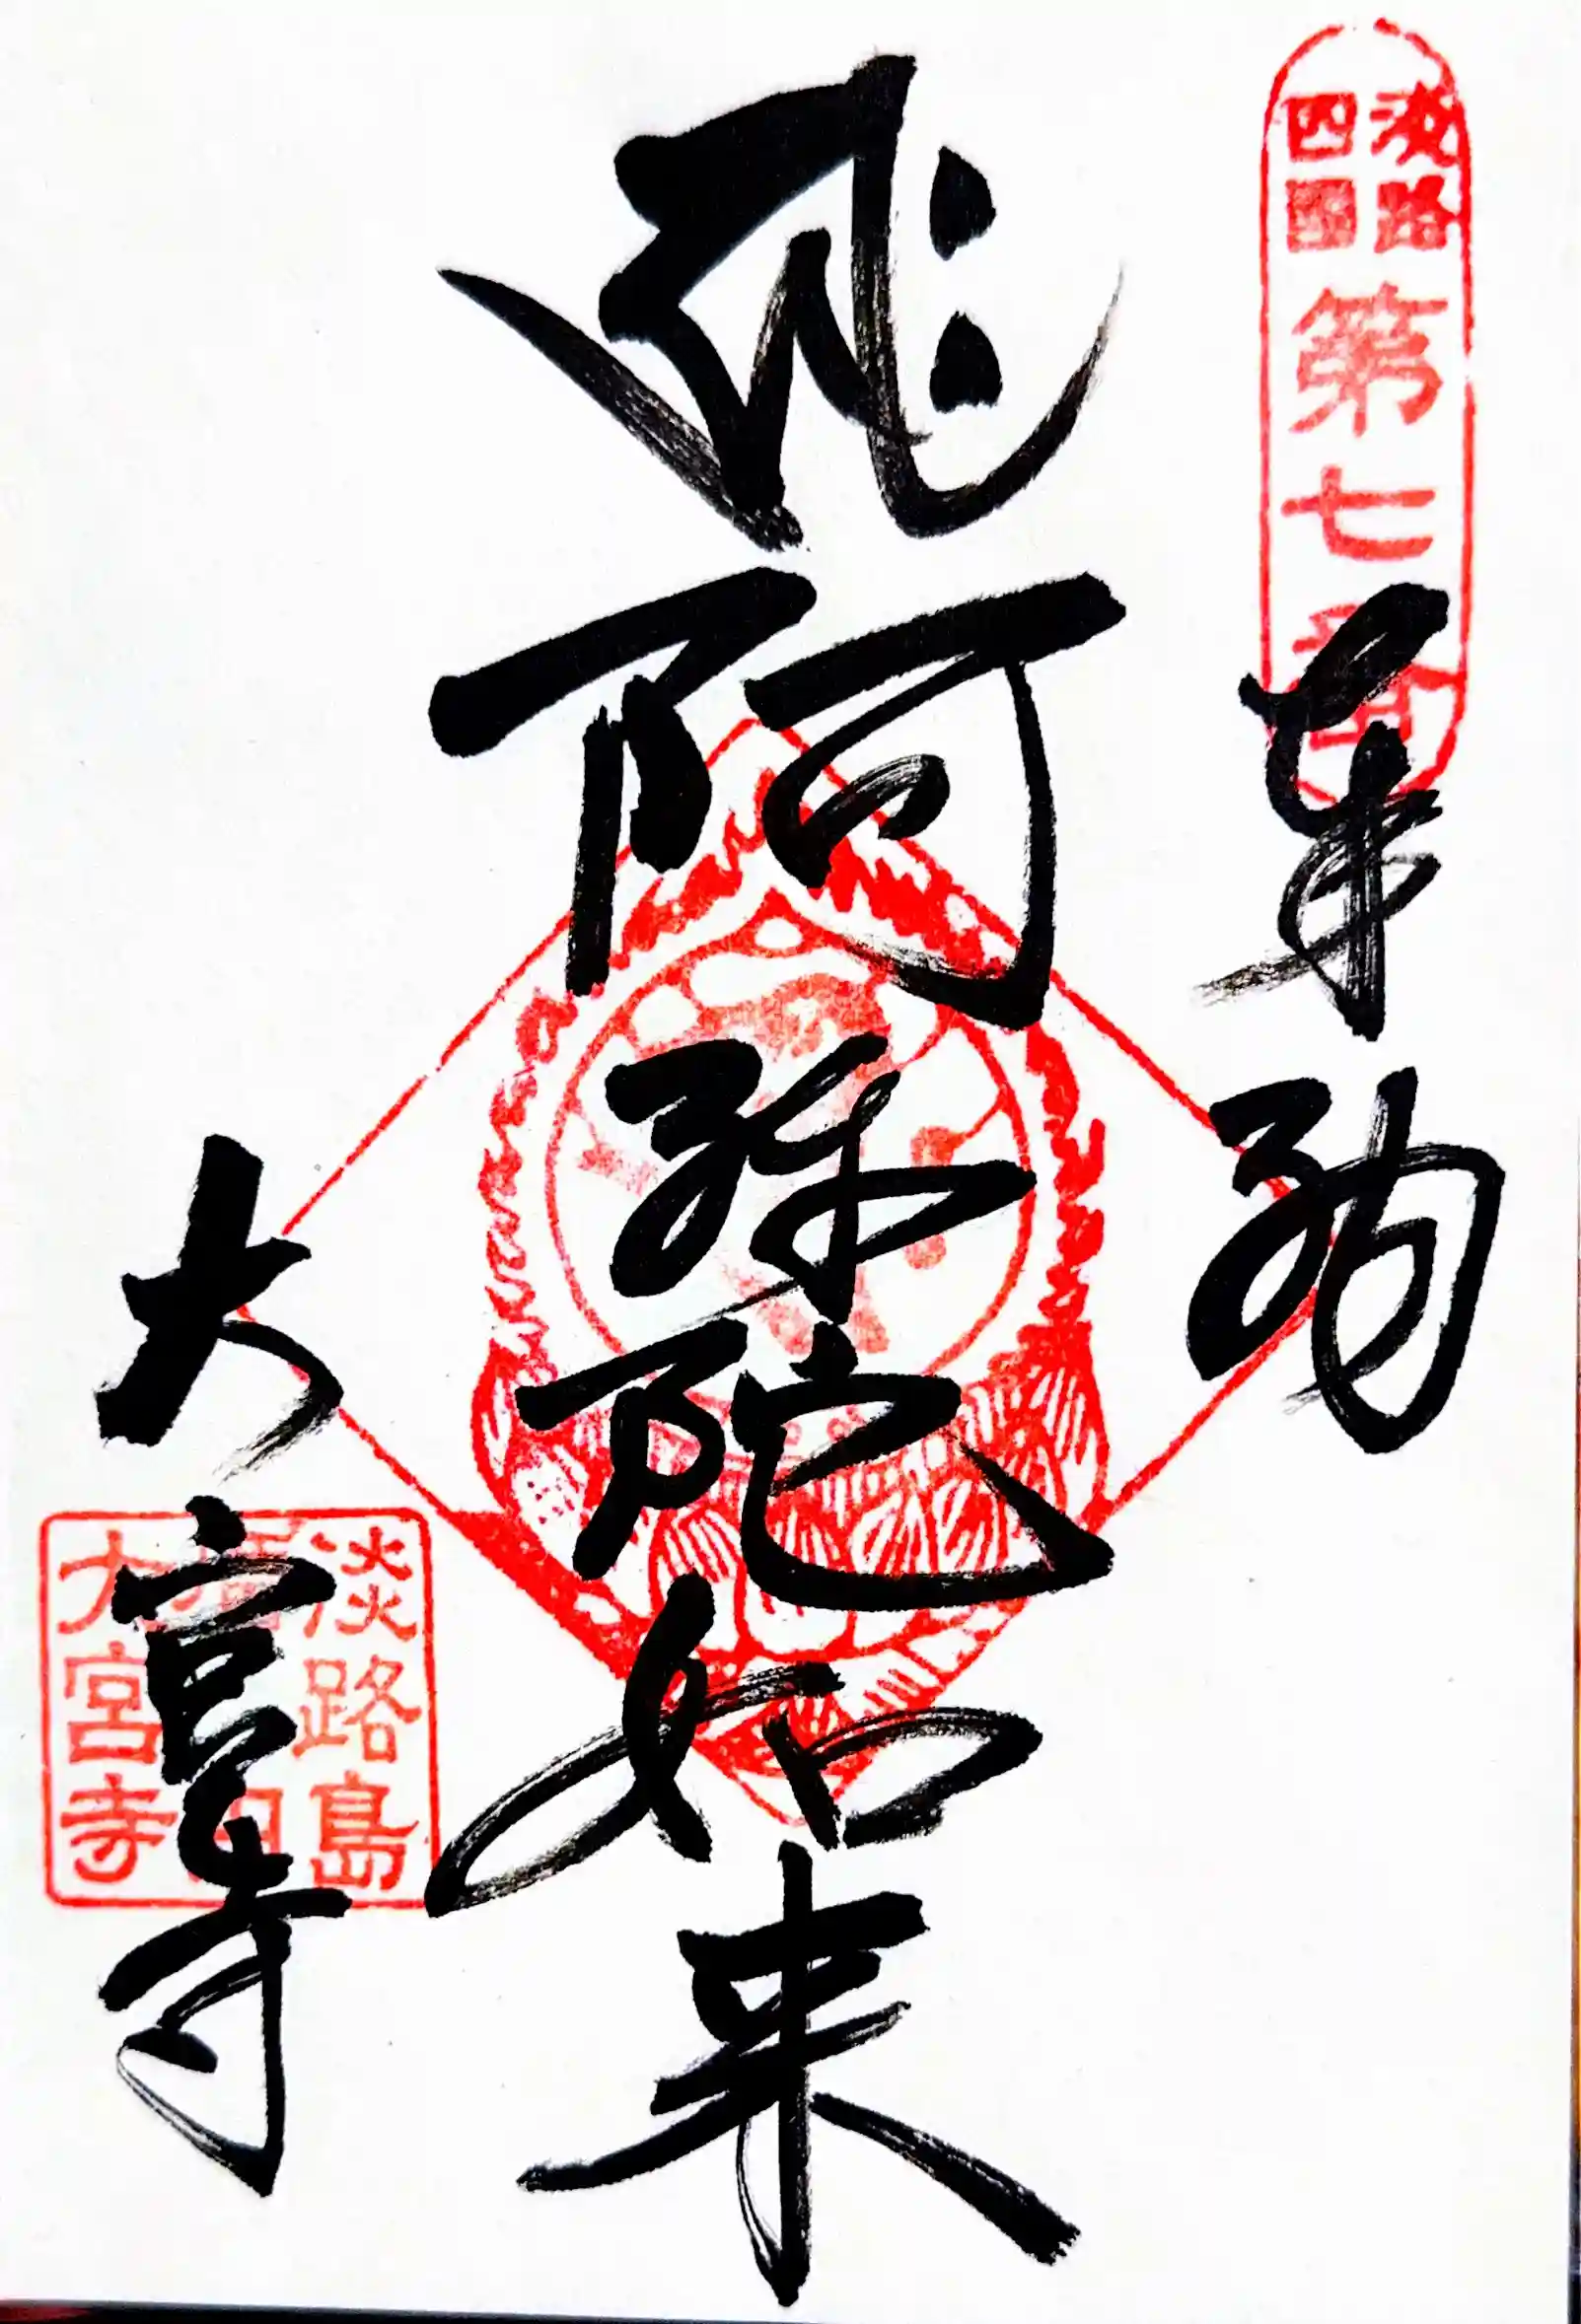 淡路
四国
第七番
奉納
𑖮𑖿𑖨𑖱𑖾
阿弥陀如来
大宮寺
淡路島
大宮寺